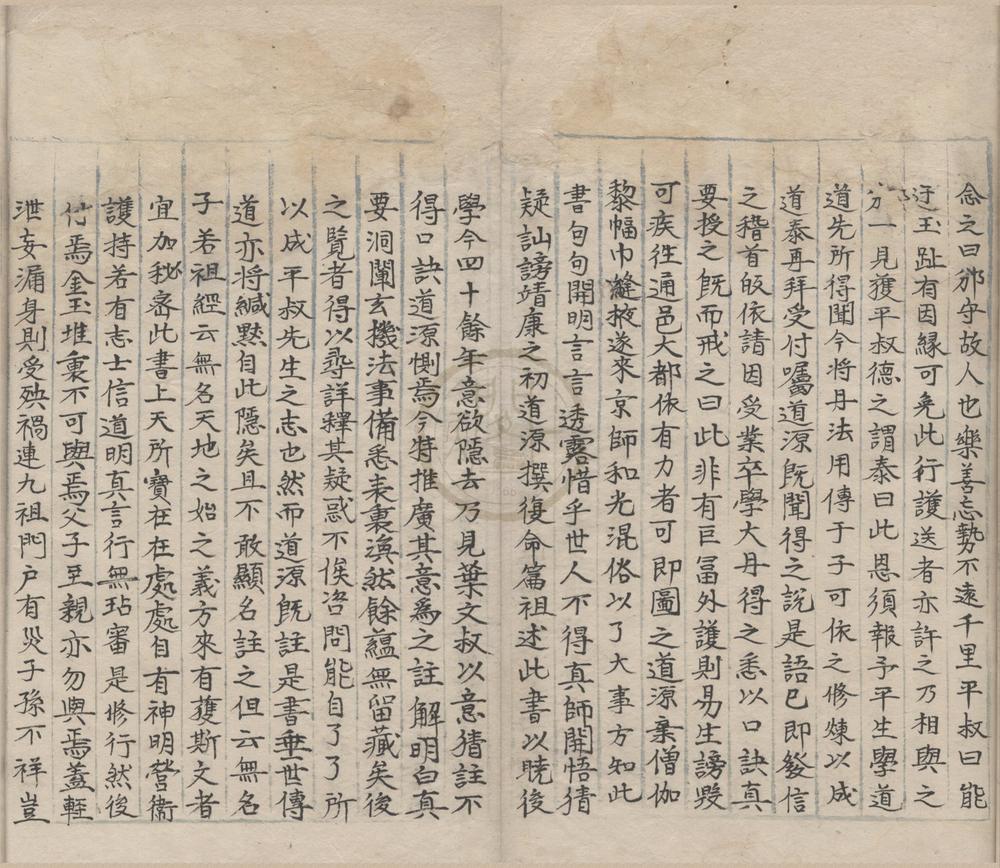 念之曰邠守故人也樂善忘勢不遠千里平叔曰能
迂玉趾有因緣可免此行護送者亦許之乃相與之
邠一見獲平叔德之謂泰曰此恩須報予平生學道
道先所得聞今將丹法用傳于子可依之修煉以成
道泰再拜受付囑道源既聞得之說是語已即發信
之稽首皈依請因受業卒學大丹得之悉以口訣真
要授之既而戒之曰此非有巨冨外護則易生謗毀
可疾徃通邑大都依有力者可即圖之道源棄僧伽
黎幅巾縫掖遂來京師和光混俗以了大事方知此
書句句開明言言透露惜乎世人不得真師開悟猜
疑訕謗靖康之初道源撰復命篇祖述此書以曉後
學今四十餘年意欲隱去乃見葉文叔以意猜註不
得口訣道源惻焉今特推廣其意為之註解明白真
要洞闡玄機法事備悉表裏渙然餘蘊無留藏矣後
之覽者得以尋詳釋其疑惑不俟咨問能自了了所
以成平叔先生之志也然而道源既註是書垂世傳
道亦將緘默自此隱矣且不敢顯名註之但云無名
子若祖經云無名天地之始之義方來有獲斯文者
宜加秘密此書上天所寶在在處處自有神明營衛
護持若有志士信道明真言行無玷審是修行然後
付焉金玉堆裏不可與焉父子至親亦勿與焉蓋輕
泄妄漏身則受殃禍連九祖門户有災子孫不祥豈